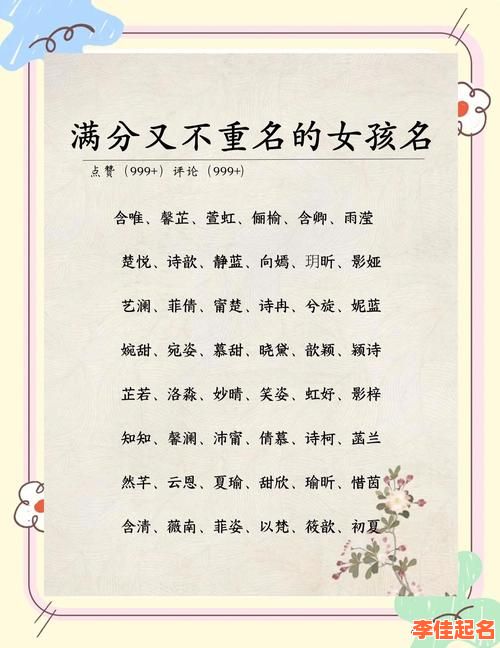 满分又不重名的女孩名
点赞（999+）评论（999+）
含唯、馨芷、萱虹、俪榆、含卿、雨滢
楚悦、诗歆、静蓝、向嫣、玥昕、影娅
艺澜、菲倩、甯楚、诗冉、兮旋、妮蓝
婉甜、宛姿、慕甜、晓黛、歆颖、颖诗
芷若、洛淼、妙晴、笑姿、虹妤、影梓
知知、馨澜、沛甯、倩慕、诗柯、菡兰
然芊、云恩、夏瑜、甜欣、瑜昕、惜茵
含清、薇南、菲姿、以梵、筱歆、初夏
李佳起名